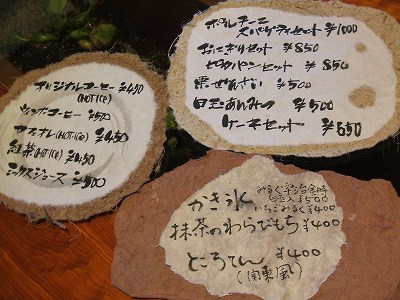 オリジナルコーヒー ¥450
(HOT・ICE)
コーヒー ¥500
カフェオレ(HOT・ICE) ¥450
紅茶(HOT・ICE) ¥450
ミックスジュース ¥500
ポルチーニ
スパゲティセット ¥1000
おにぎりセット ¥850
ピタパンセット ¥850
ぜんざい ¥500
白玉あんみつ ¥500
ケーキセット ¥650
かき氷 みるく宇治金時
¥500
いちごみるく¥400
抹茶のわらびもち ¥400
ところてん ¥400
(関東風)